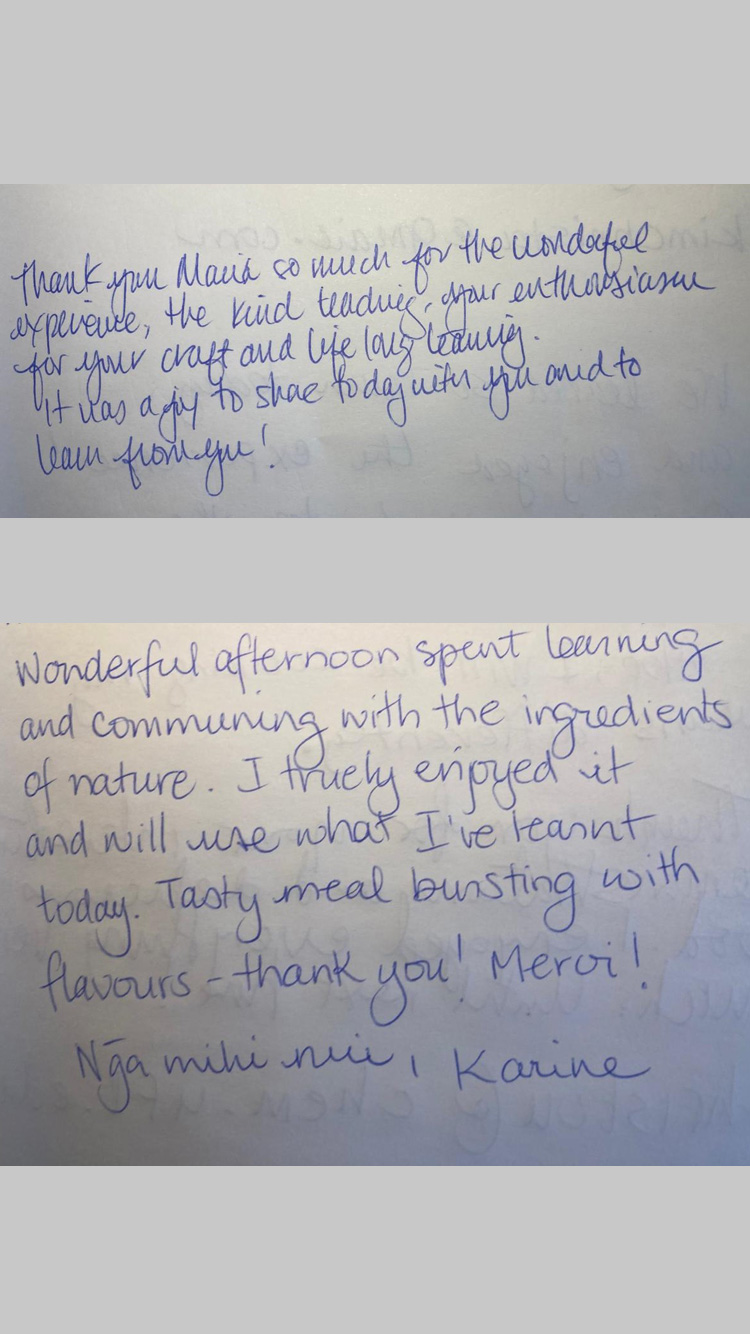 Thank you Maria so much for the wonderful
experience, the kind teaching, your enthousiasm
for your craft and life long learning.
It was a joy to share today with you and to
learn from you!
Wonderful afternoon spent learning
and communing with the ingredients
of nature. I truely enjoyed it
and will use what I've learnt
today. Tasty meal bursting with
flavours - thank you! Merci!
Ngā mihi nui, Karine